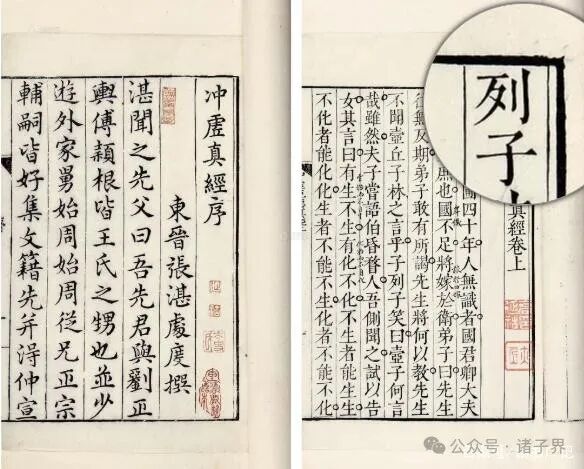 冲虛真經序
東晉張湛處度撰
湛聞之先父曰吾先君與劉正
輿傅穎根皆王氏之甥也並少
遊外家舅始周始周從兄正宗
輔嗣皆好集文籍先并得仲宣
列子
真經卷上
國四十年人無識者國君卿大夫
庶也國不足將嫁於衛弟子曰先生
往無反期弟子敢有所謁先生將何以教先生
不聞壺丘子林之言乎子列子笑曰壺子何言
哉雖然夫子嘗語伯昏瞀人吾側聞之試以告
女其言曰有生不生有化不化不生者能生生
不化者能化化生者不能不生化者不能不化
公众号 · 诸子界